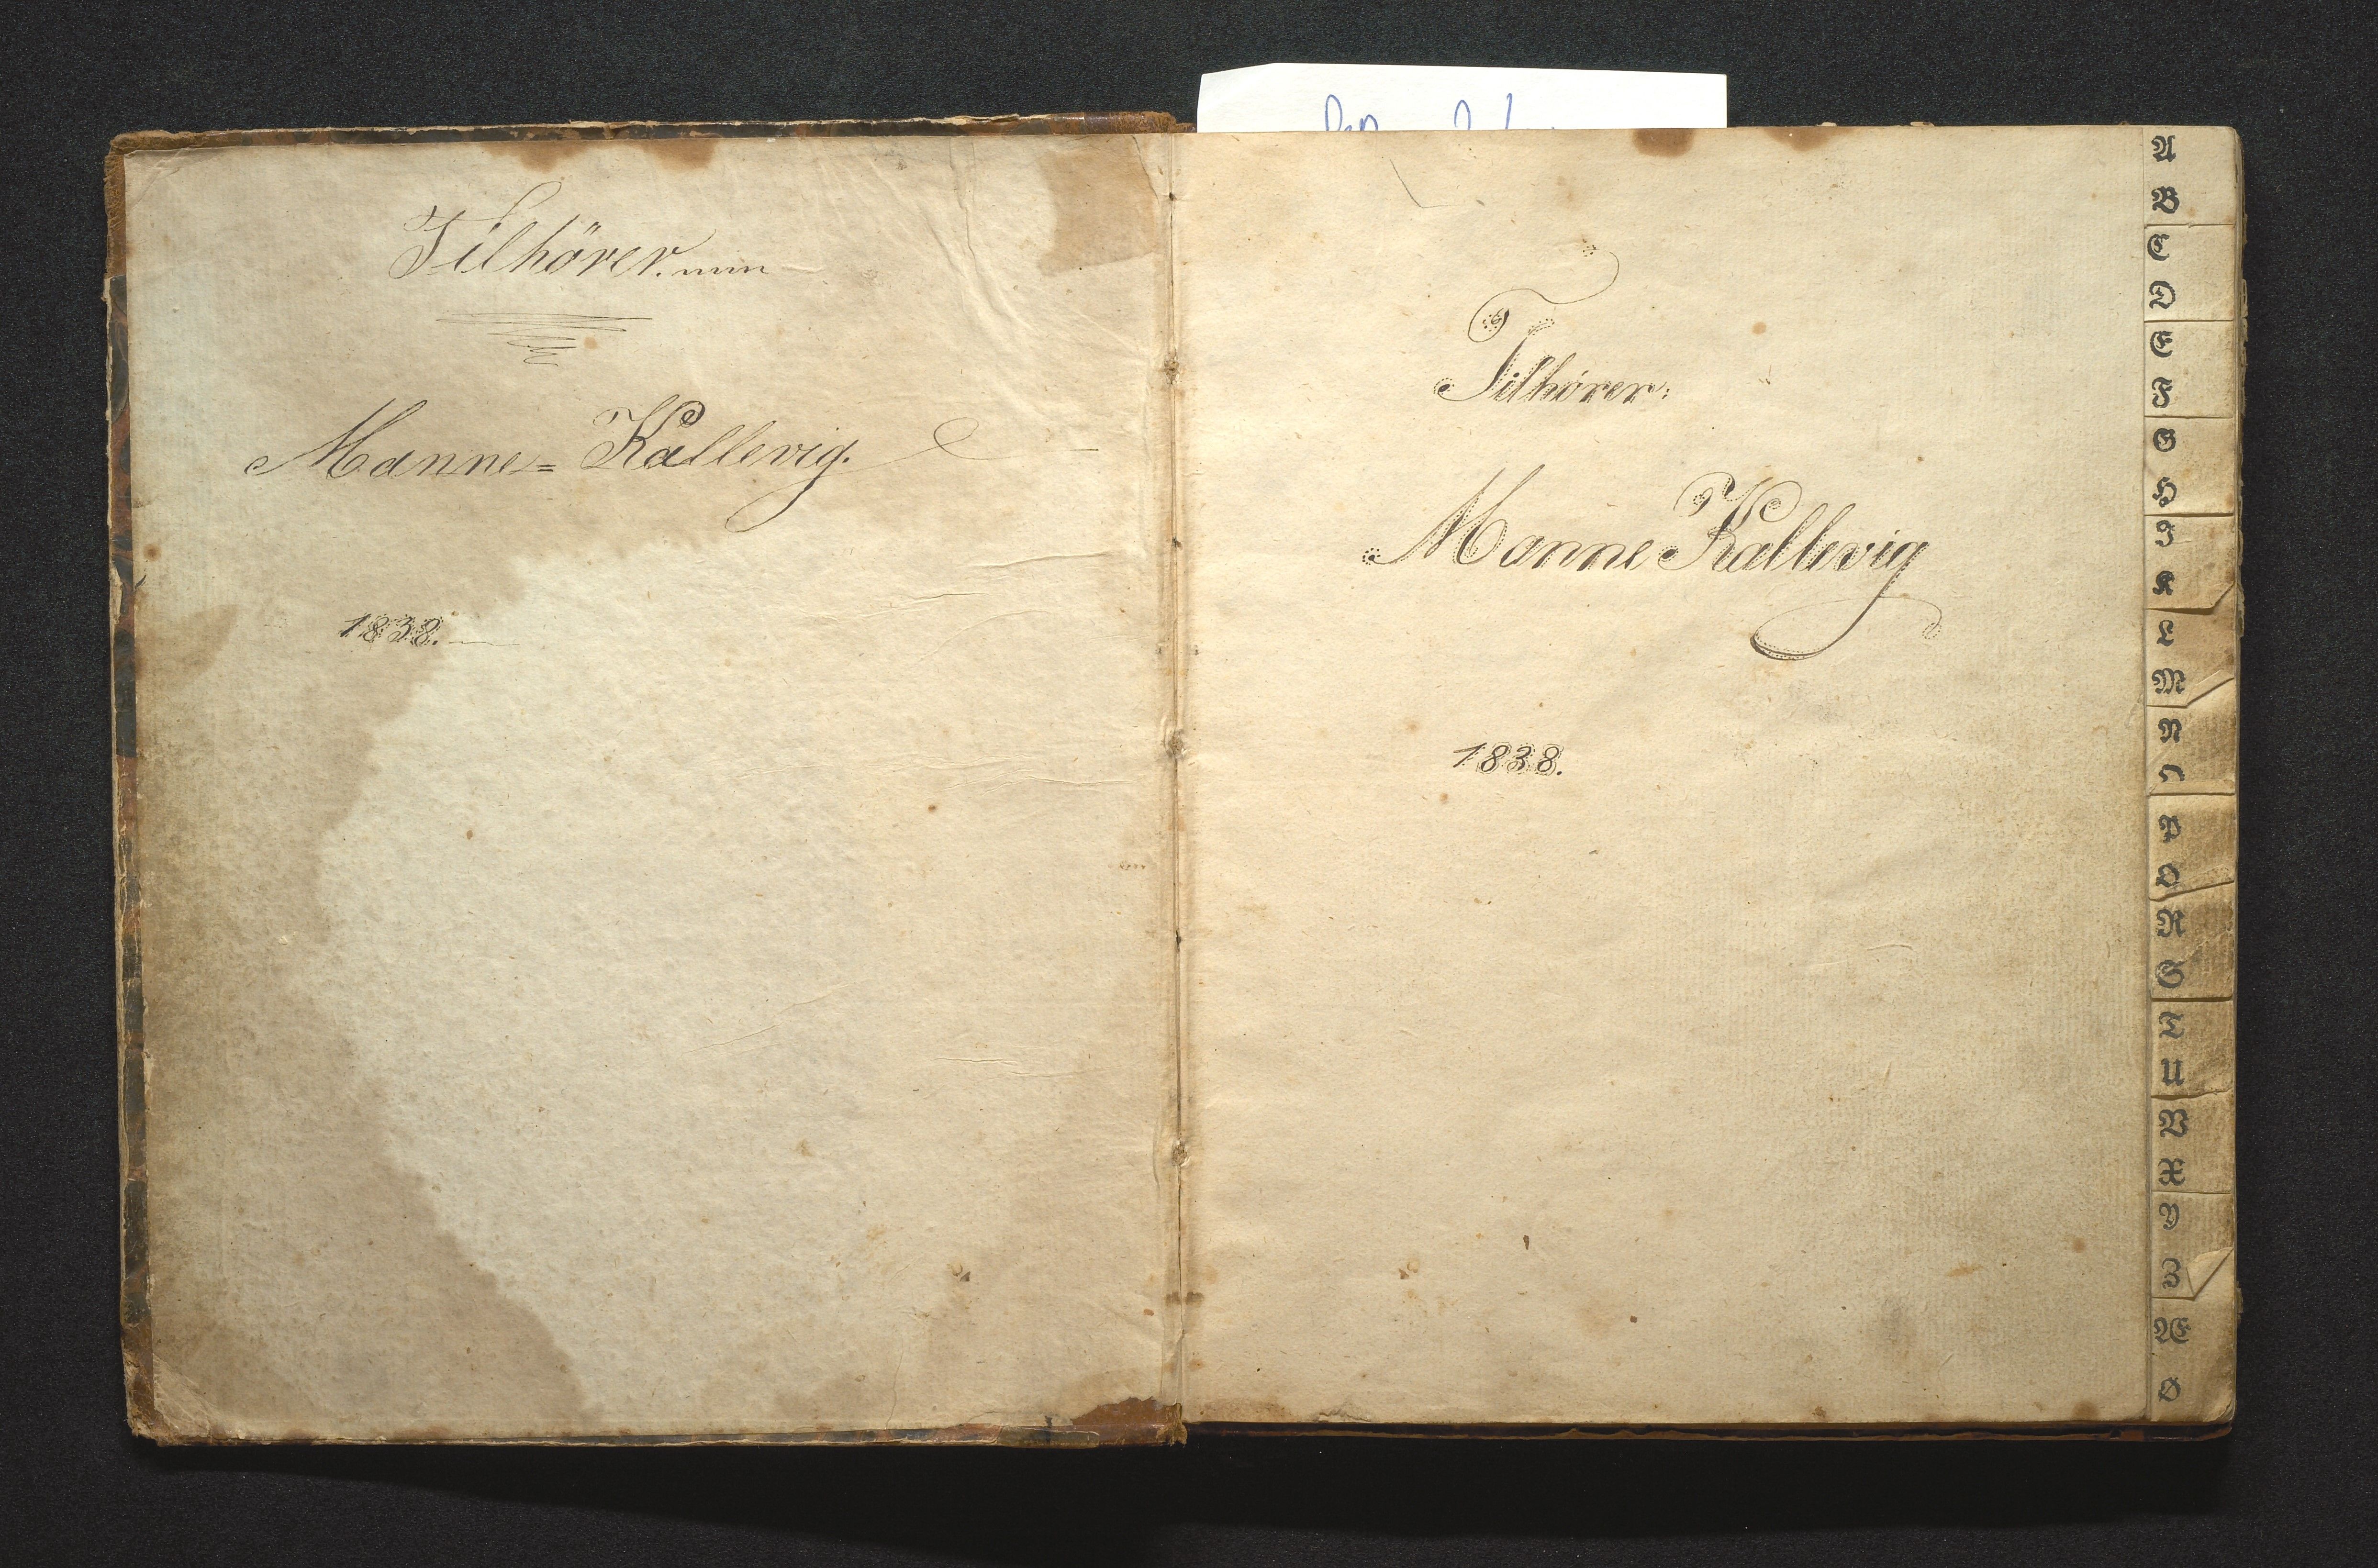 Tilhörer.
Manne = Kallevig.
1838.
Tilhörer:
Manne Kallevig
1838.
A
B
C
D
E
F
G
H
I
K
L
M
N
O
P
Q
R
S
T
U
V
X
Y
Z
Æ
Ø